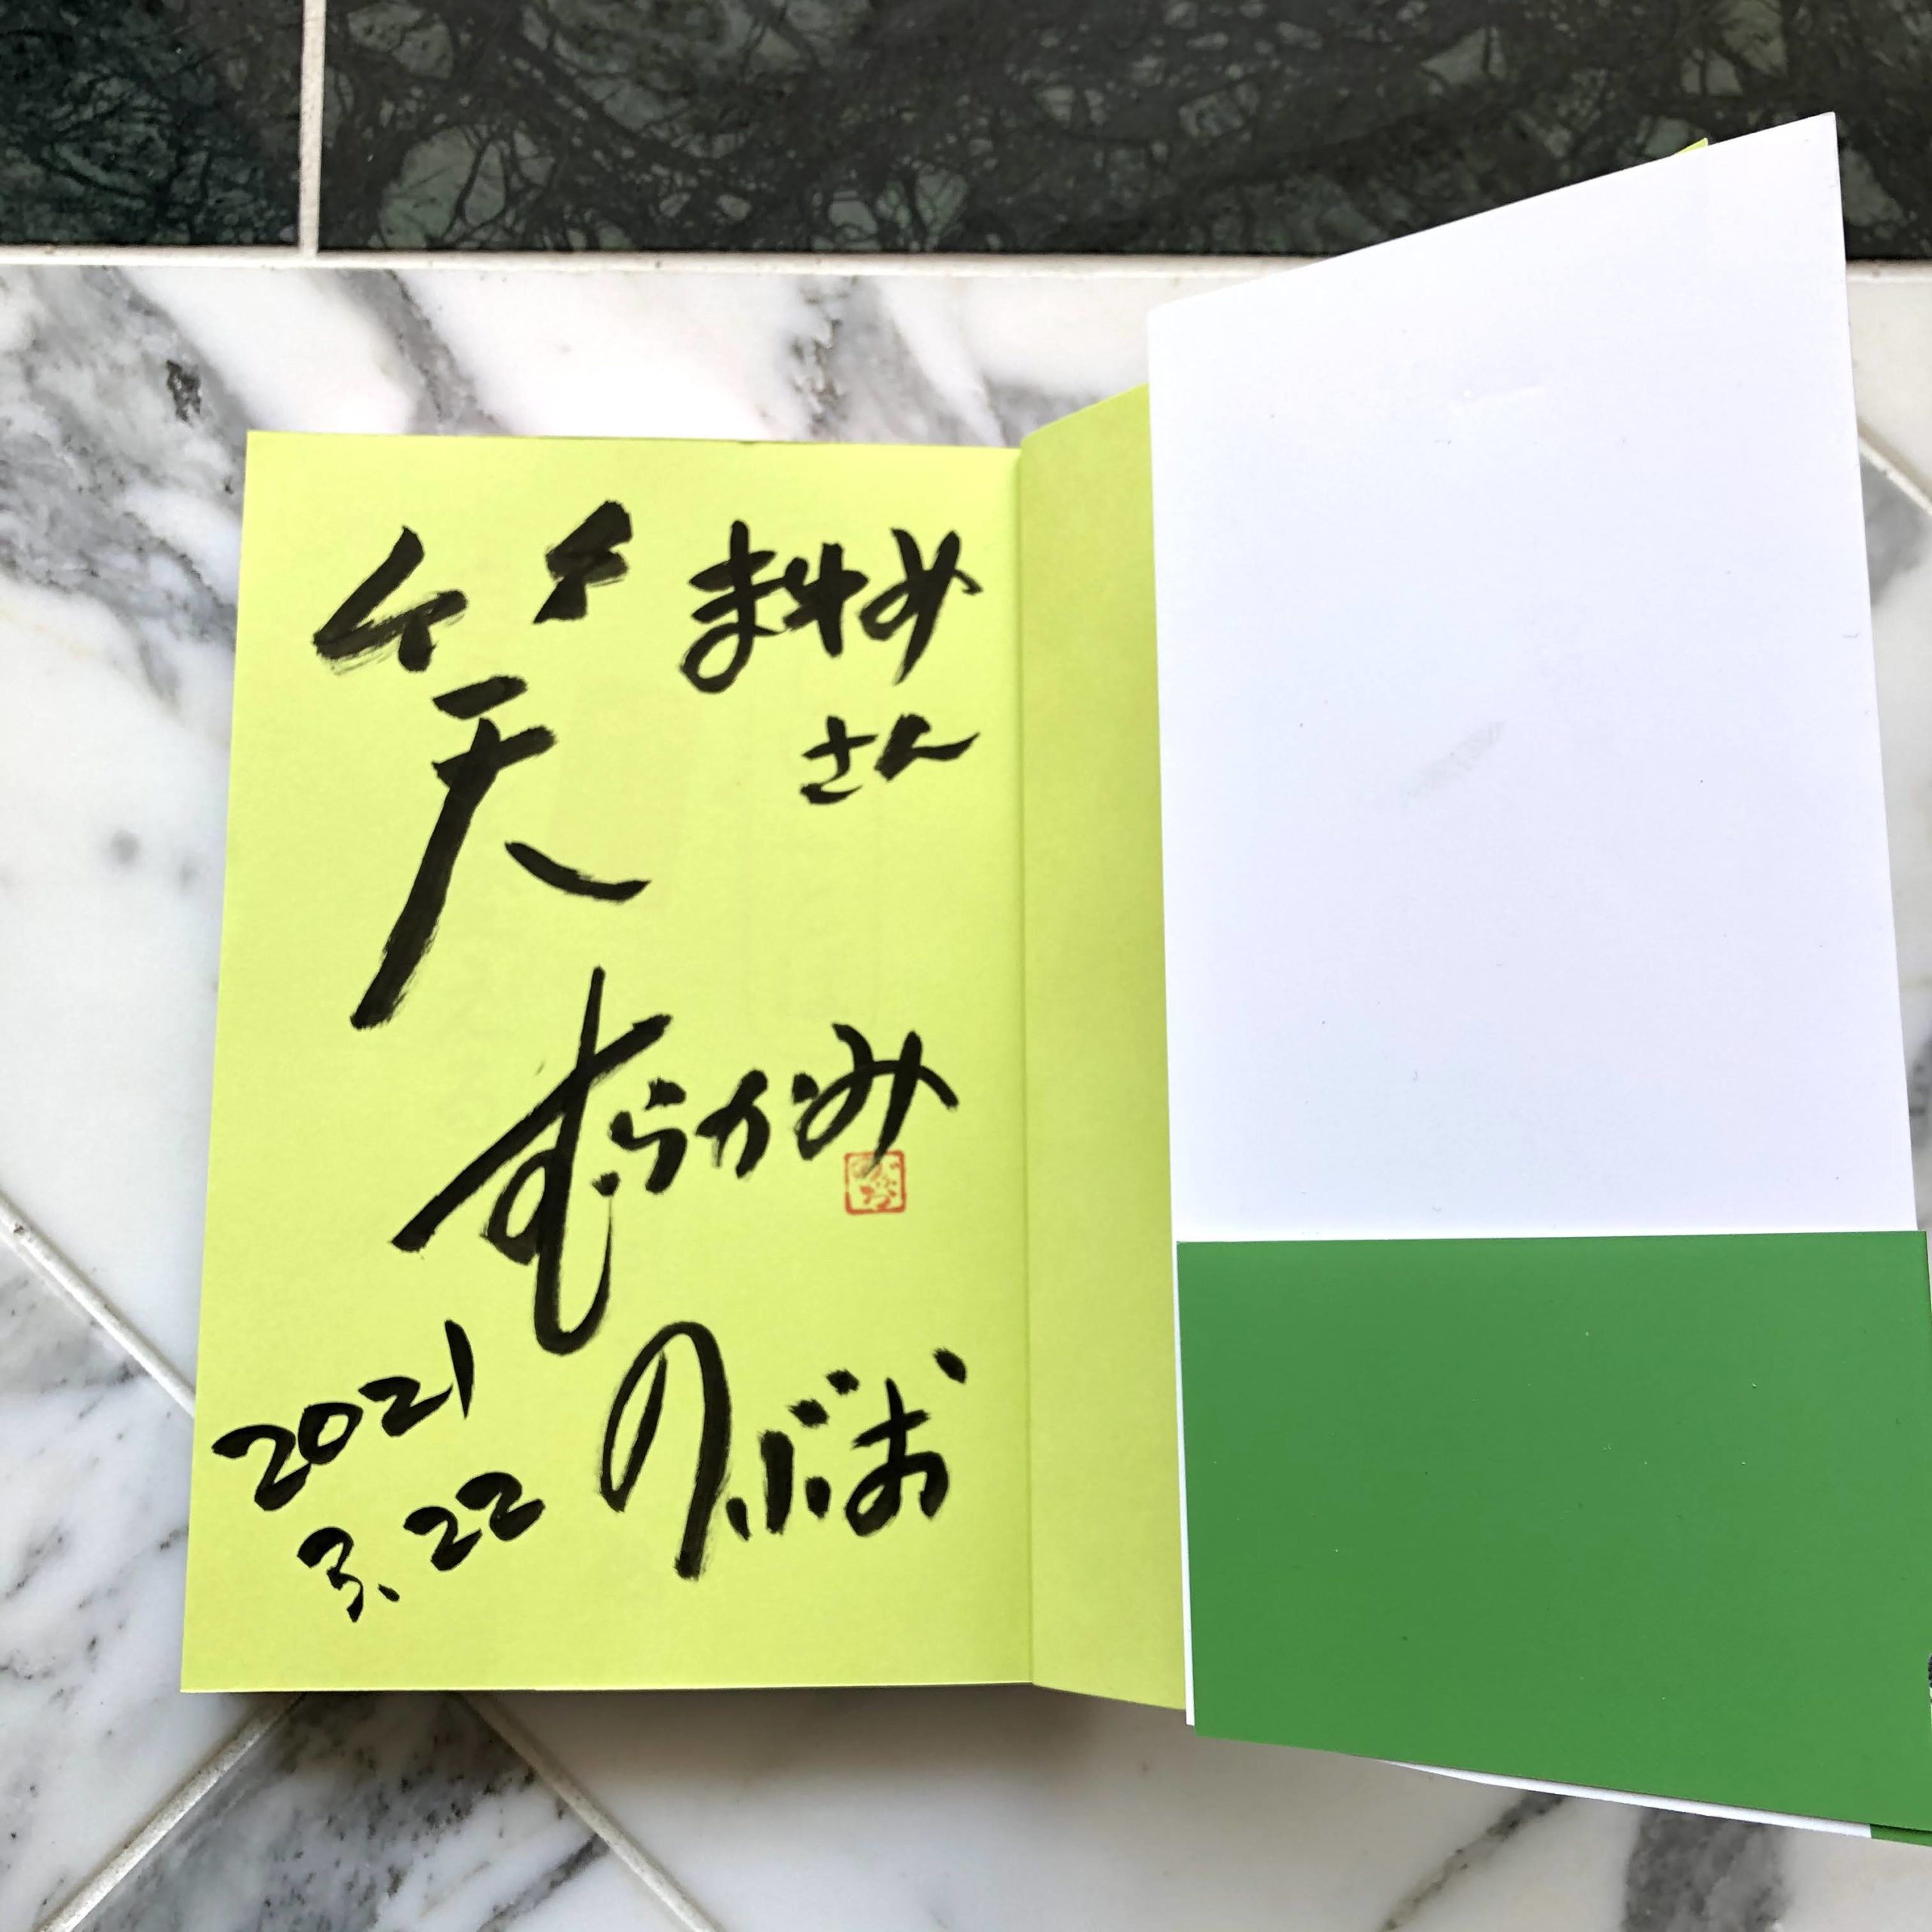 まゆみ
さん
笑
むらかみ
のぶお
2021
3.22